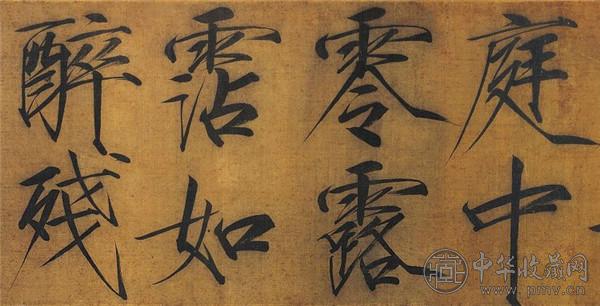 庭中
零露
霑如
醉残
中华收藏网
www.pmv.cn